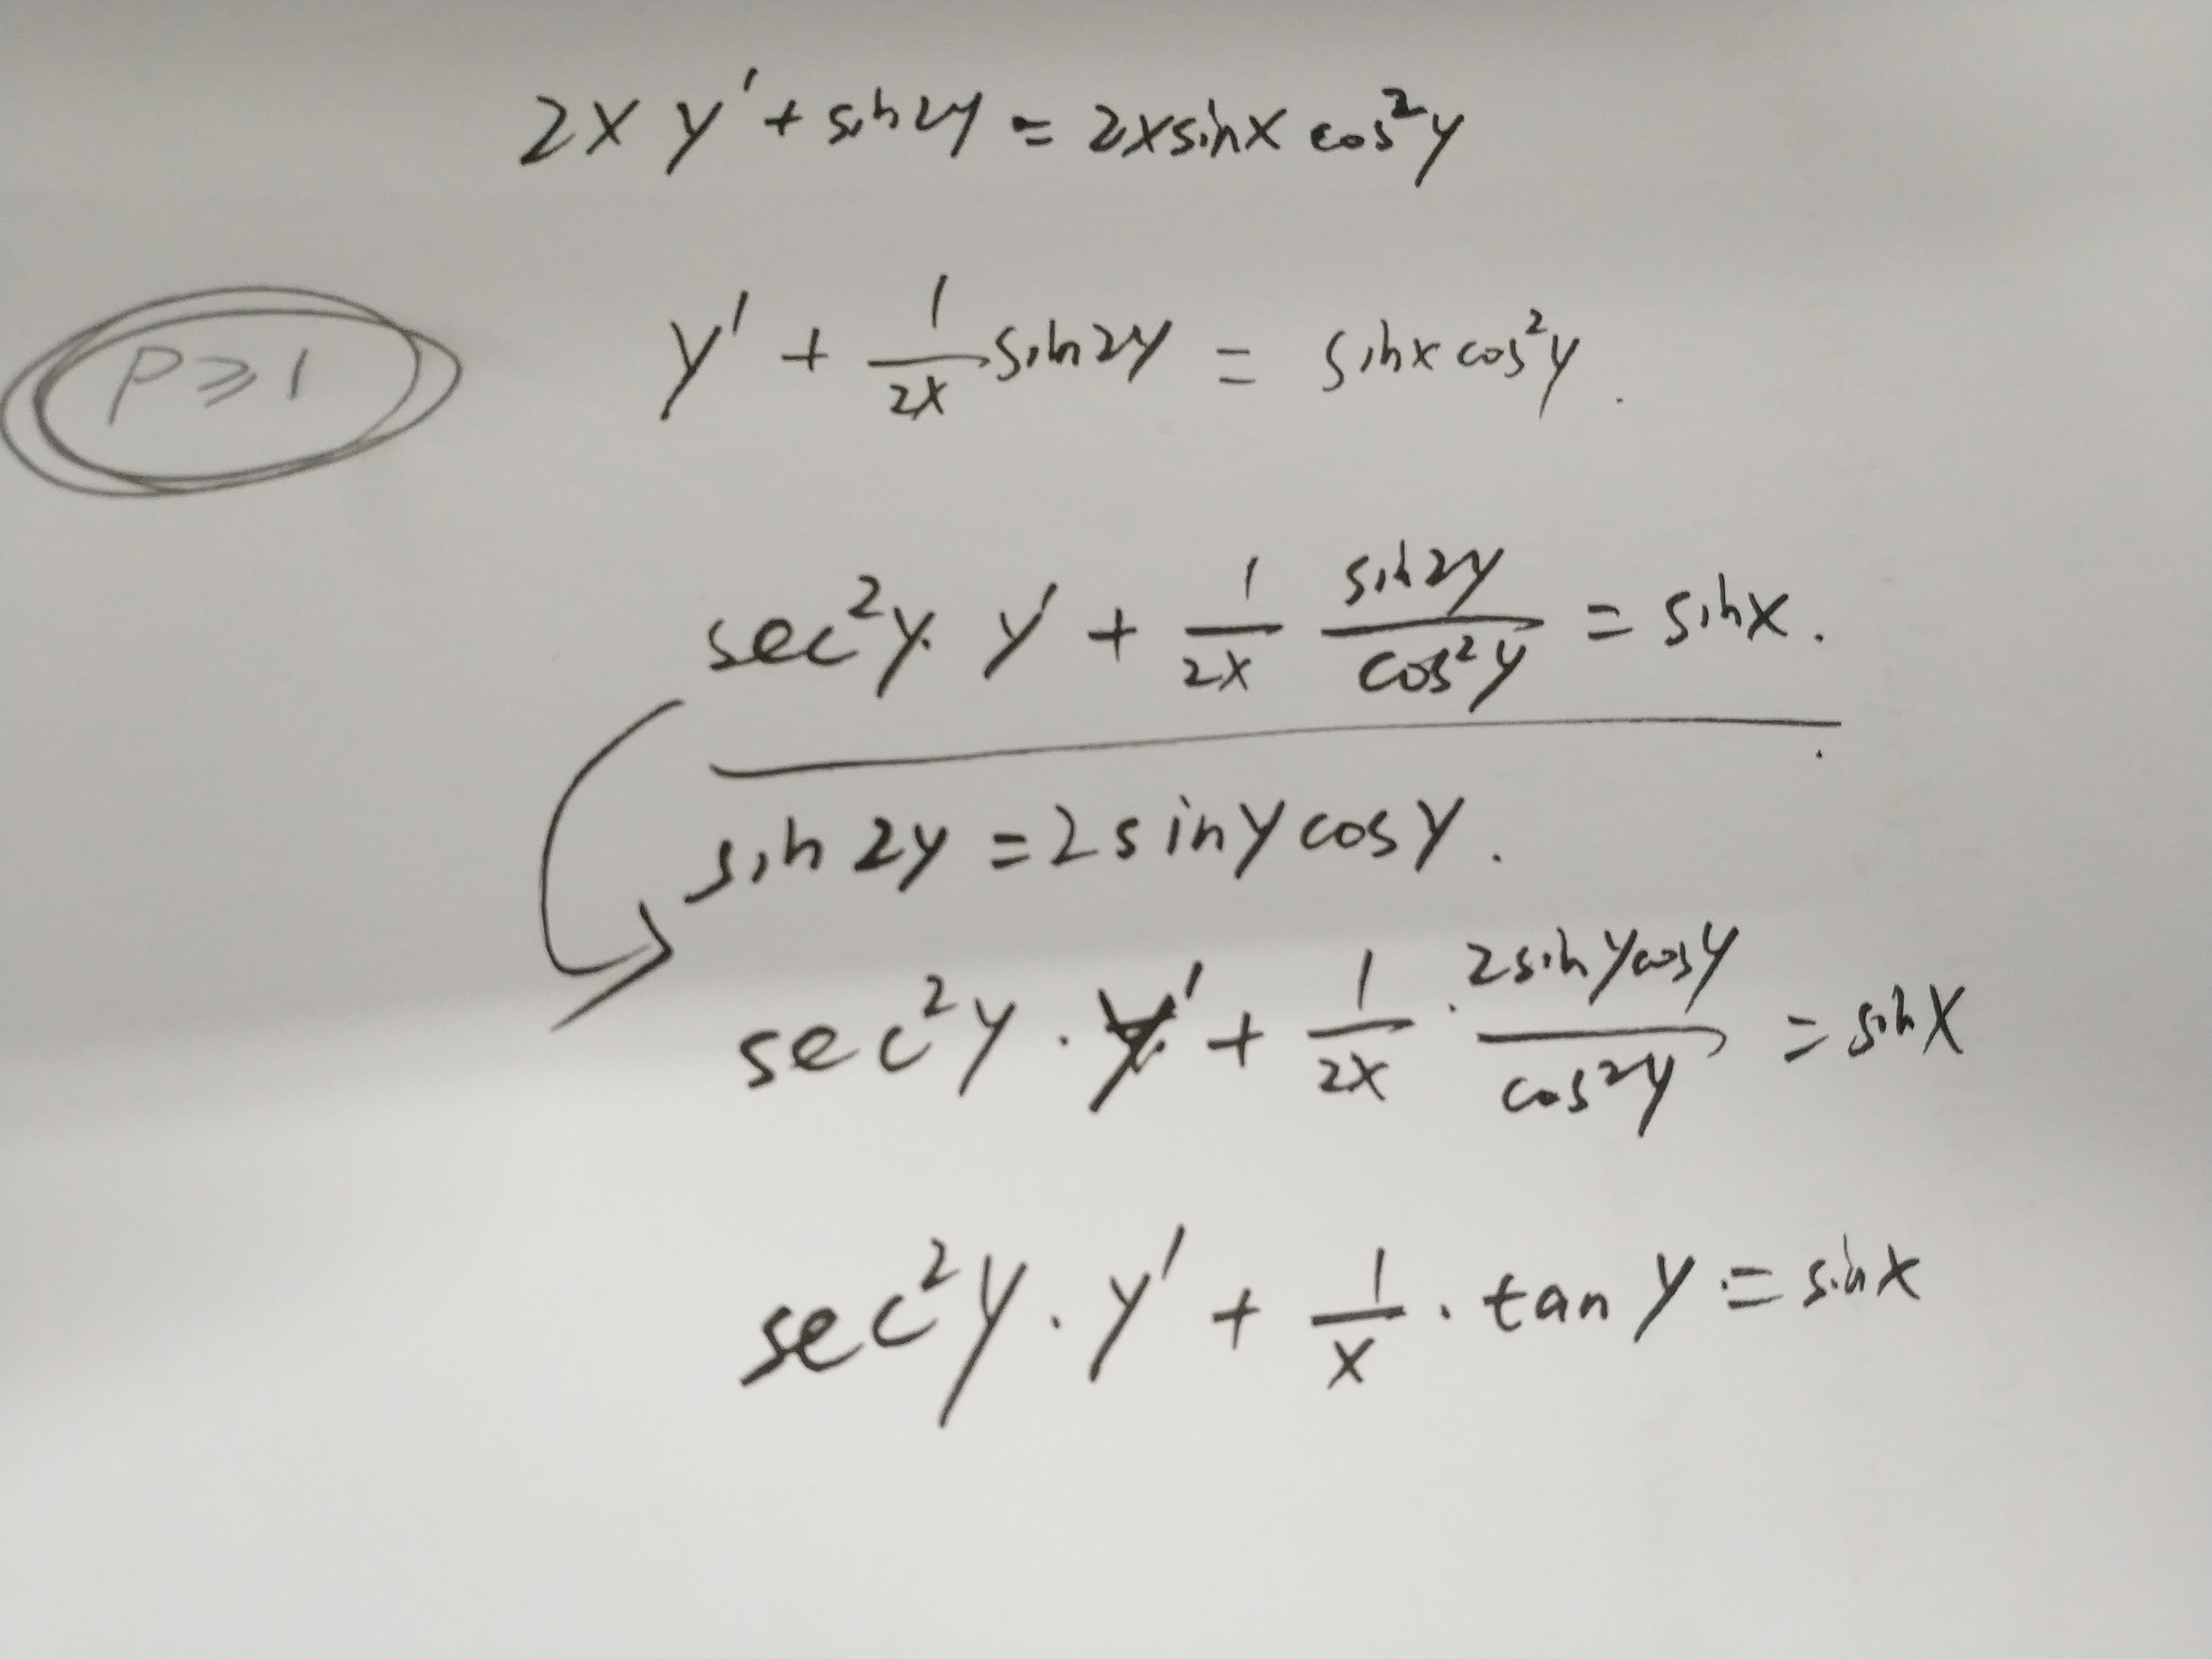 2xy' + sin2y = 2xsinx cos²y
P ⩾ 1
y' + 1/2x sin2y = sinx cos²y.
sec²y · y' + 1/2x sin2y/cos²y = sinx.
sin2y = 2sinycosy.
sec²y · y' + 1/2x · 2sinycosy/cos²y = sinx
sec²y · y' + 1/x · tan y = sinx